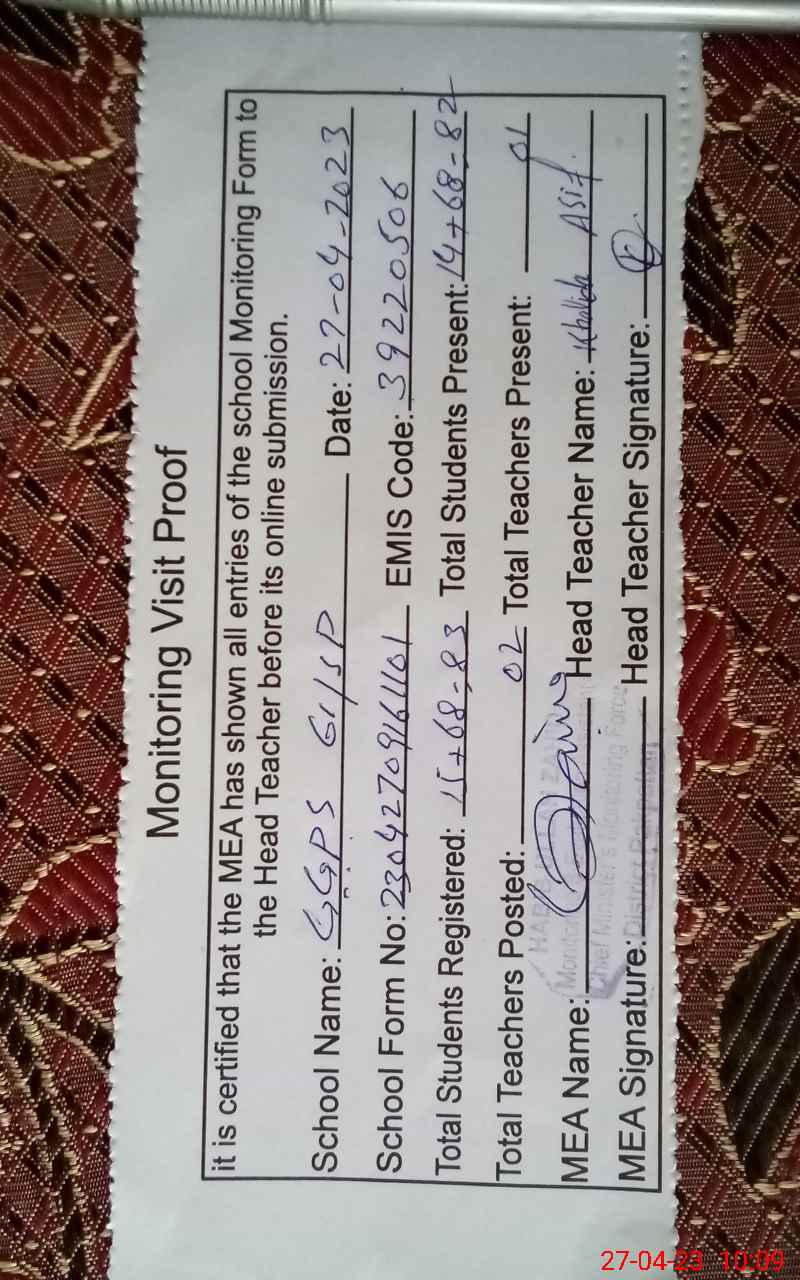 Monitoring Visit Proof
it is certified that the MEA has shown all entries of the school Monitoring Form to
the Head Teacher before its online submission.
School Name: GGPS 61/SP Date: 27-04-2023
School Form No: 23042709161101 EMIS Code: 39220506
Total Students Registered: 15+68=83 Total Students Present: 14+68=82
Total Teachers Posted: 02 Total Teachers Present: 01
MEA Name: Head Teacher Name: Khalida Asif.
MEA Signature: Head Teacher Signature:
Chief Minister's Monitoring Force
District Pakpattan
27-04-23 10:09